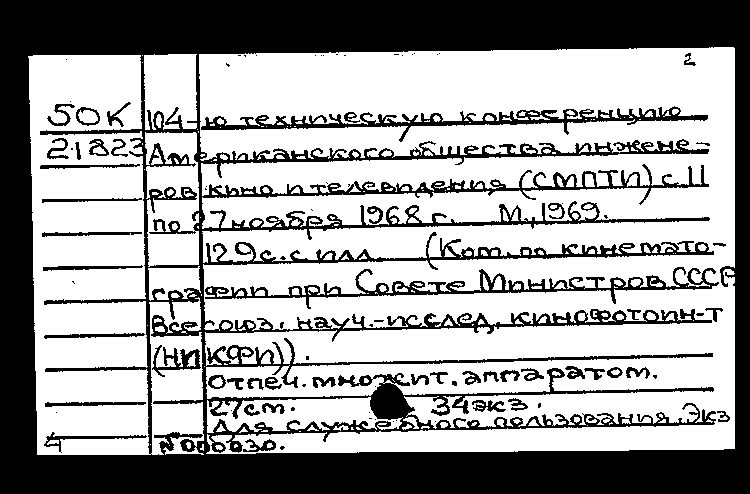 2
50К 104-ю техническую конференцию
21823 Американского общества инжене-
ров кино и телевидения (СМПТИ) с 11
по 27 ноября 1968 г. М., 1969.
129с. с илл. (Ком. по кинемато-
графии при Совете Министров СССР
Всесоюз. науч.-исслед. кинофотоин-т
(НИКФИ)).
Отпеч. множит. аппаратом.
27см. 34экз.
Для служебного пользования. Экз
4 №000030.